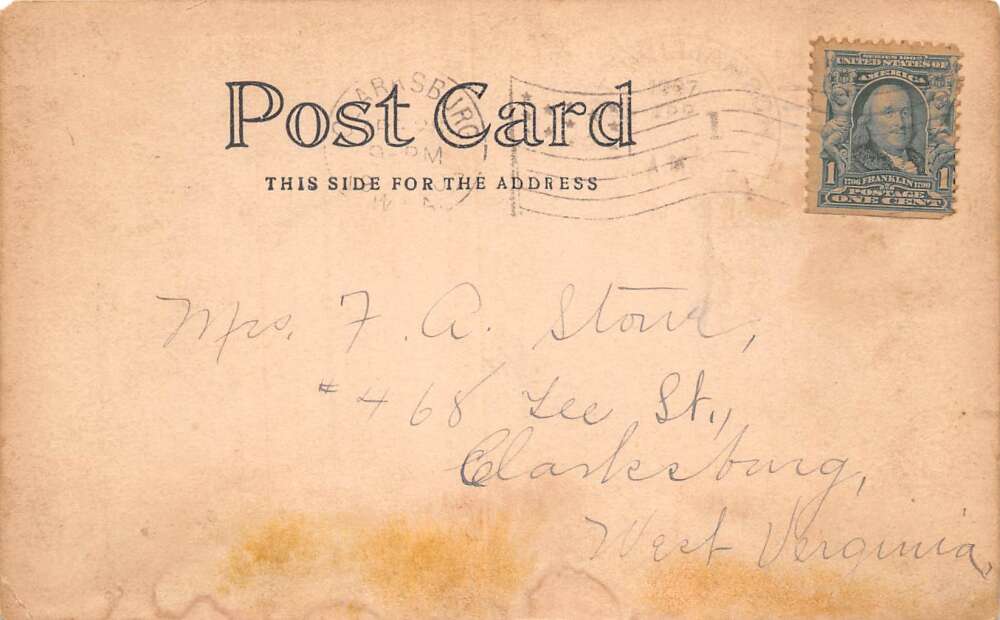 Post Card
THIS SIDE FOR THE ADDRESS
ARKSBURG
5-PM
1907
1
SERIES 1902
UNITED STATES OF
AMERICA
1 1706 FRANKLIN 1790 1
POSTAGE
ONE CENT
Mrs. F. A. Stone,
#468 Lee St.,
Clarksburg,
West Virginia,